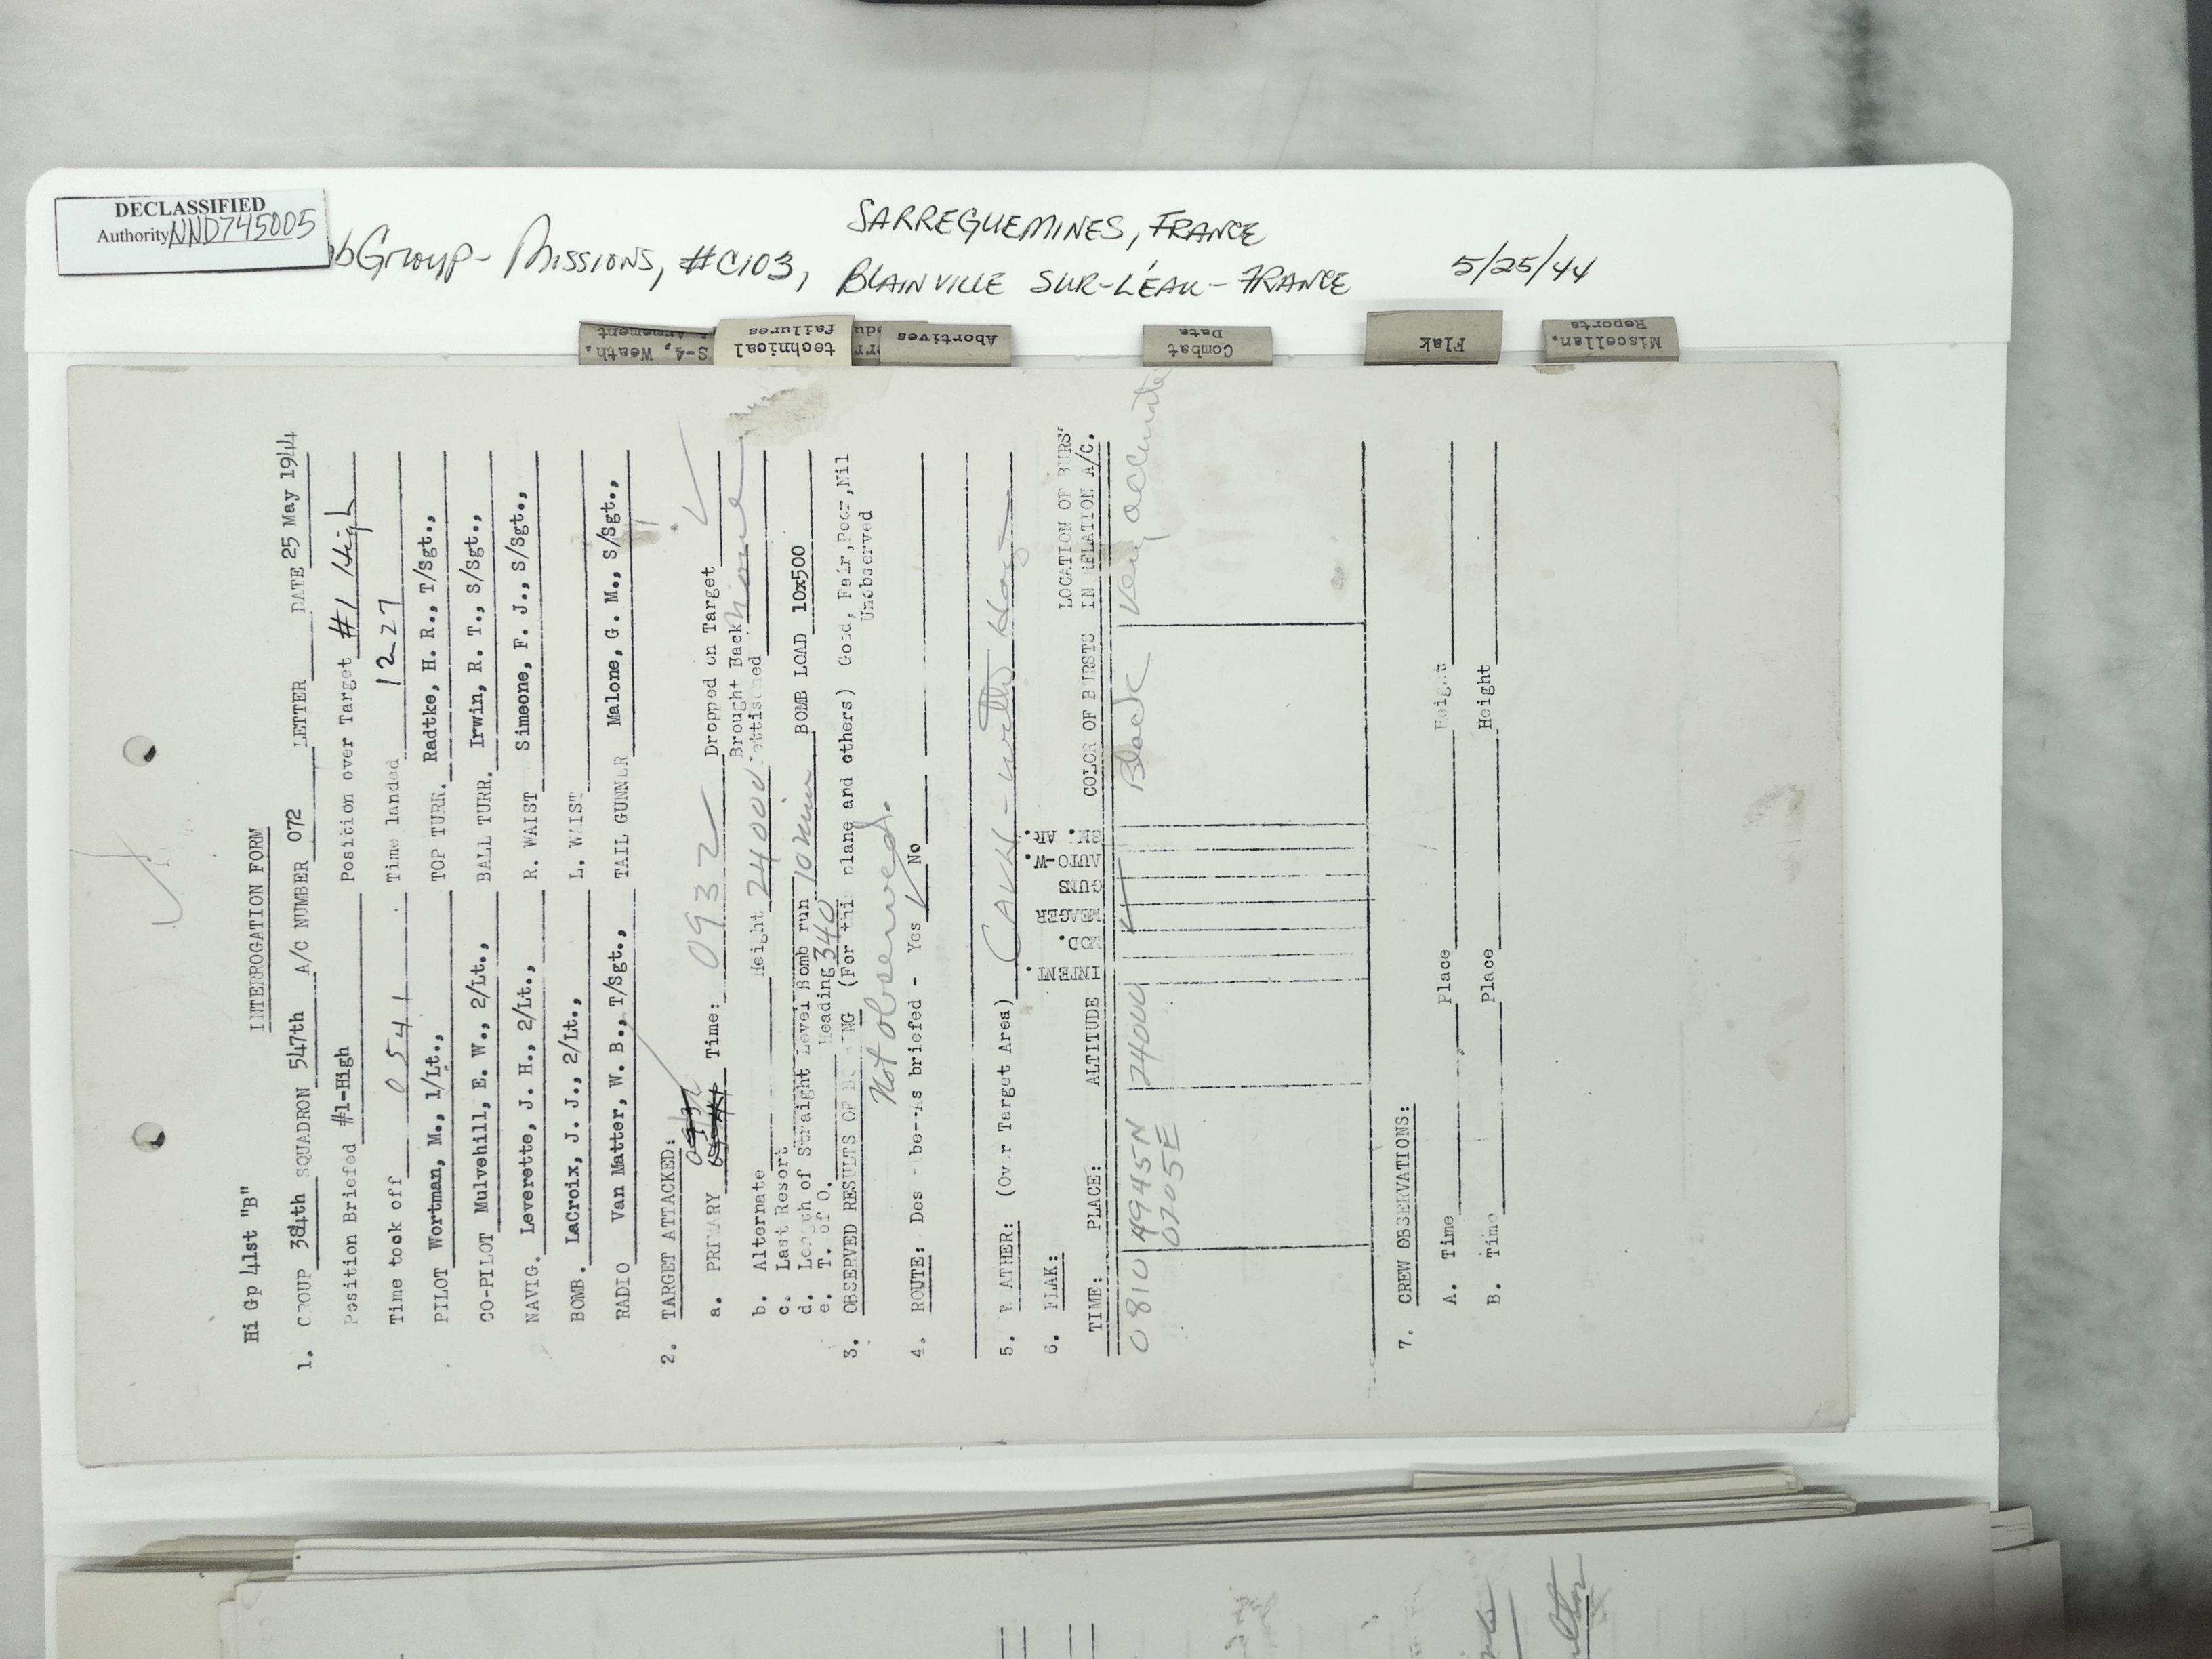 DECLASSIFIED
Authority NND745005
bGroup- Missions, #C103,
SARREGUEMINES, FRANCE
BLAINVILLE SUR-L'EAU- FRANCE
5/25/44
S-4, Weath.
Armament
technical
failures
Abortives
Combat
Data
Flak
Miscellan.
Reports
Hi Gp 41st "B"
INTERROGATION FORM
1. GROUP 384th SQUADRON 547th A/C NUMBER 072 LETTER DATE 25 May 1944
Position Briefed #1-High Position over Target #1 High
Time took off 0541 Time landed 1227
PILOT Wortman, M., 1/Lt., TOP TURR. Radtke, H. R., T/Sgt.,
CO-PILOT Mulvehill, E. W., 2/Lt., BALL TURR. Irwin, R. T., S/Sgt.,
NAVIG. Leverette, J. H., 2/Lt., R. WAIST Simeone, F. J., S/Sgt.,
BOMB. LaCroix, J. J., 2/Lt., L. WAIST
RADIO Van Matter, W. B., T/Sgt., TAIL GUNNER Malone, G. M., S/Sgt.,
2. TARGET ATTACKED:
a. PRIMARY Time: 0932 Dropped on Target
Brought Back None
b. Alternate Height 24000 Jettisoned
c. Last Resort
d. Length of Straight Level Bomb run 10 min BOMB LOAD 10x500
e. T. of O. Heading 340
3. OBSERVED RESULTS OF BOMBING (For this plane and others) Good, Fair, Poor, Nil
Unobserved
Not observed.
4. ROUTE: Describe--As briefed - Yes No
5. WEATHER: (Over Target Area) CAVU -
6. FLAK:
LOCATION OF BURST
TIME: PLACE: ALTITUDE INTENT. MOD. MEAGER GUNS AUTO-W. BK. AR. COLOR OF BURSTS IN RELATION A/C.
0810 4945N 24000 4 Black Very accurate
0205E
7. CREW OBSERVATIONS:
A. Time Place Height
B. Time Place Height